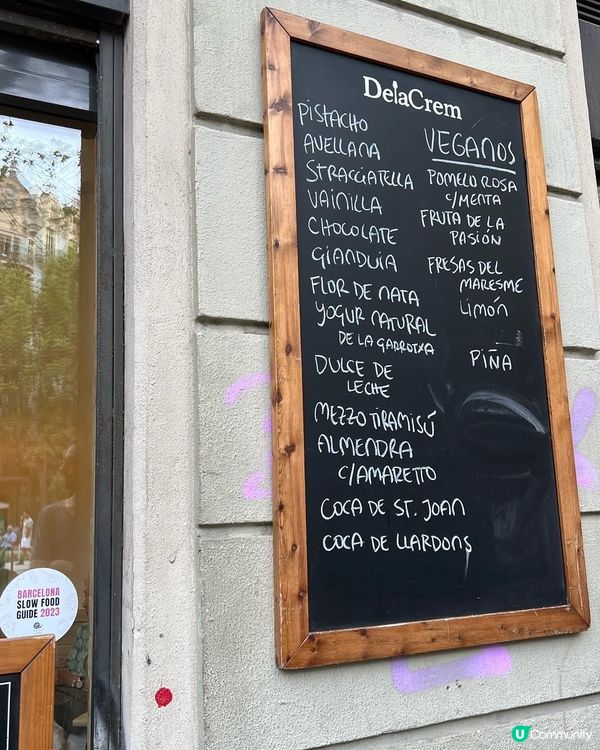 DelaCrem
PISTACHO
AVELLANA
STRACCIATELLA
VAINILLA
CHOCOLATE
GIANDUIA
FLOR DE NATA
YOGUR NATURAL
DE LA GARROTXA
DULCE DE
LECHE
MEZZO TIRAMISÚ
ALMENDRA
C/AMARETTO
COCA DE ST. JOAN
COCA DE LLARDONS
VEGANOS
POMELO ROSA
C/MENTA
FRUTA DE LA
PASIÓN
FRESAS DEL
MARESME
LIMÓN
PIÑA
BARCELONA
SLOW FOOD
GUIDE 2023
U Community